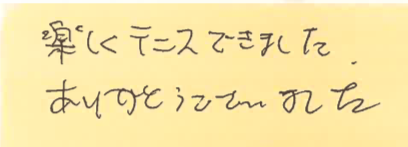 楽しくテニスできました.
ありがとうございました